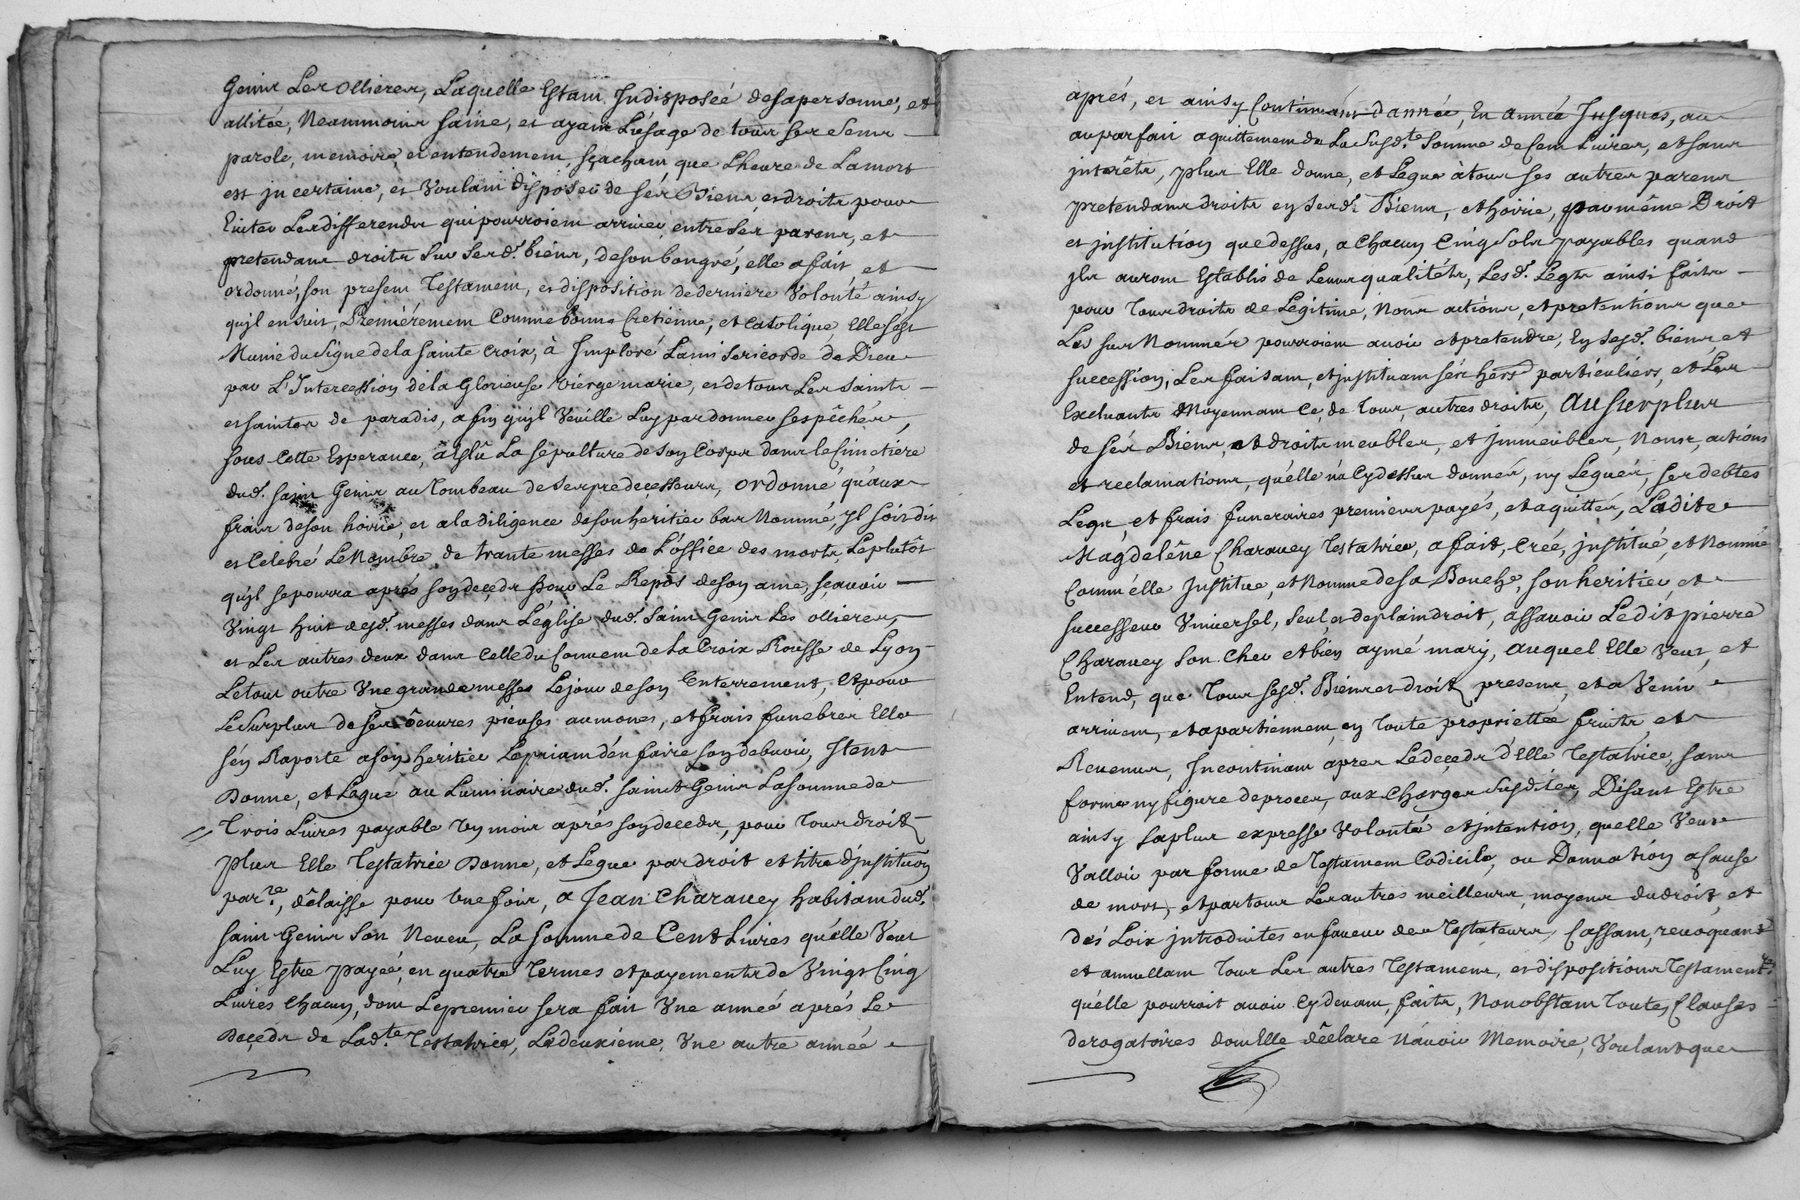 Genis Les ollieres, Laquelle Estant Indisposéé desapersonne, et
allitée, Neammoins saine, et ayant Lúsage de tous ses sens
parole, memoire, et entendement, sçachant que Lheure de Lamort
est incertaine, et Voulant disposer de sés Biens et droits pour
Eviter Lesdifferends qui pourroient arriver entre sés parens, et
pretendans droits sur sesd.ts biéns, desonbongré, elle afait et
ordonné, son present Testament, et disposition dederniere Volonté ainsy
qujl ensuit, Premiérement Comme bonne Cretienne, et Catolique Elle sést
Munie du signe dela sainte Croix, à Imploré Lamisericorde de Dieu
par L'Intercession déla Glorieuse viérge marie, et de tous Les saints
et saintes de paradis, afin qujl Veuille Luy pardonner ses pêchés,
sous Cette Esperance, à Eslû La sépulture de son Corps dans lesimetiére
dud. saint Genis au Tombeau de ses predecesseurs, ordonné quáux
frais deson hoirie, et ala diligence deson heritier bas Nommé, jl soit dit
et Celebré Le Nombre de trante messes de L'óffice des morts, Leplutôt
qujl se pourra aprés son decéds pour Le Repôs de son ame, sçavoir
Vingt huit desd. messes dans L'église dud. saint Genis Les ollieres,
et Les autres deux dans Celle du Convent de La Croix Rousse de Lyon
Le tout outre Une grande messe Lejour de son Enterrement, et pour
Le surplus de ses oeuvres pieuses aumones, et frais funebres Elle
s'én Raporte ason dheritier Lepriant d'én faire son debvoir, Item
Donne, et Légue au Luminaire dud. saint Genis La somme de
Trois Livres payable Un mois aprés son deceds, pour Tous droits
plus Elle Testatrice Donne, et Legue par droit et titre d'jnstitution
par.re, délaisse pour Une fois, a Jean Charavey habitant dud.
saint Genis son Neveu, La somme de Cent Livres quélle Veut
Luy Estre payéé, en quatre Termes et payements de Vingt Cinq
Livres Chacun, dont Lepremier sera fait Une annéé aprés Le
Decéds de Lad.te Testatrice, Ladeuxiéme, Une autre annéé
aprés, et ainsy Continuant d'année, En année Jusques, au
au parfait aquittement de La susd.te somme de Cent Livres, et sans
jntérêts, plus Elle donne, et Legue à tous ses autres parens
pretendans droits en sesd.ts Biens, et hoirie, par même Droit
et jnstitution que dessus, a Chacun Cinq sols payables quand
jls auront Establis de Leurs qualitéts, Lesd.ts Légts ainsi faits
pour Tous droits de Légitime, Noms actions, et pretentions que
Les sus Nommés pourroient avoir et pretendre, En sesd.ts biens, et
succession, Les faisant, et jnstituant sés hers particuliérs, et Les
Excluants Moyennant Ce, de Tous, autres droits, Au surplus
de sés Biens, et droits meubles, et jmmeubles, Noms, actions
et reclamations, quélle ná Cy dessus donnés, ny Legués, ses debtes
Legs, et frais funeraires premiers payés, et aquittés, Ladite
Magdeléne Charavey Testatrice, a fait, Créé, jnstitué, et Nommé
Comm'élle Jnstitue, et Nomme de sa Bouche, son heritier, et
successeur Universel, seul, et de plain droit, assavoir Ledit pierre
Charavey son Cher et bien aymé mary, auquel Elle Veut, et
Entend, que Tous sesd.ts Biéns et droits presens, et a Venir
arrivent, et apartiennent, en Toute proprietée fruits et
Revenus, Incontinant aprés Le décéds d'Elle Testatrice, sans
forme ny figure deprocés, aux Charges susdites, Disant Estre
ainsy sa plus expresse Volonté et jntention, quelle Veut
Valloir par forme de Testament Codicile, ou Donnation a Cause
de mort, et par tous Les autres meilleurs, moyens du droit, et
dés Loix jntroduites en faveur des Testateurs, Cassant, revoquant
et annullant Tous Les autres Testamens, et dispositions Testament.res
quélle pourroit avoir Cy devant, faits, Nonobstant Toutes Clauses
derogatoires dont Elle déclare Návoir Memoire, Voulant que